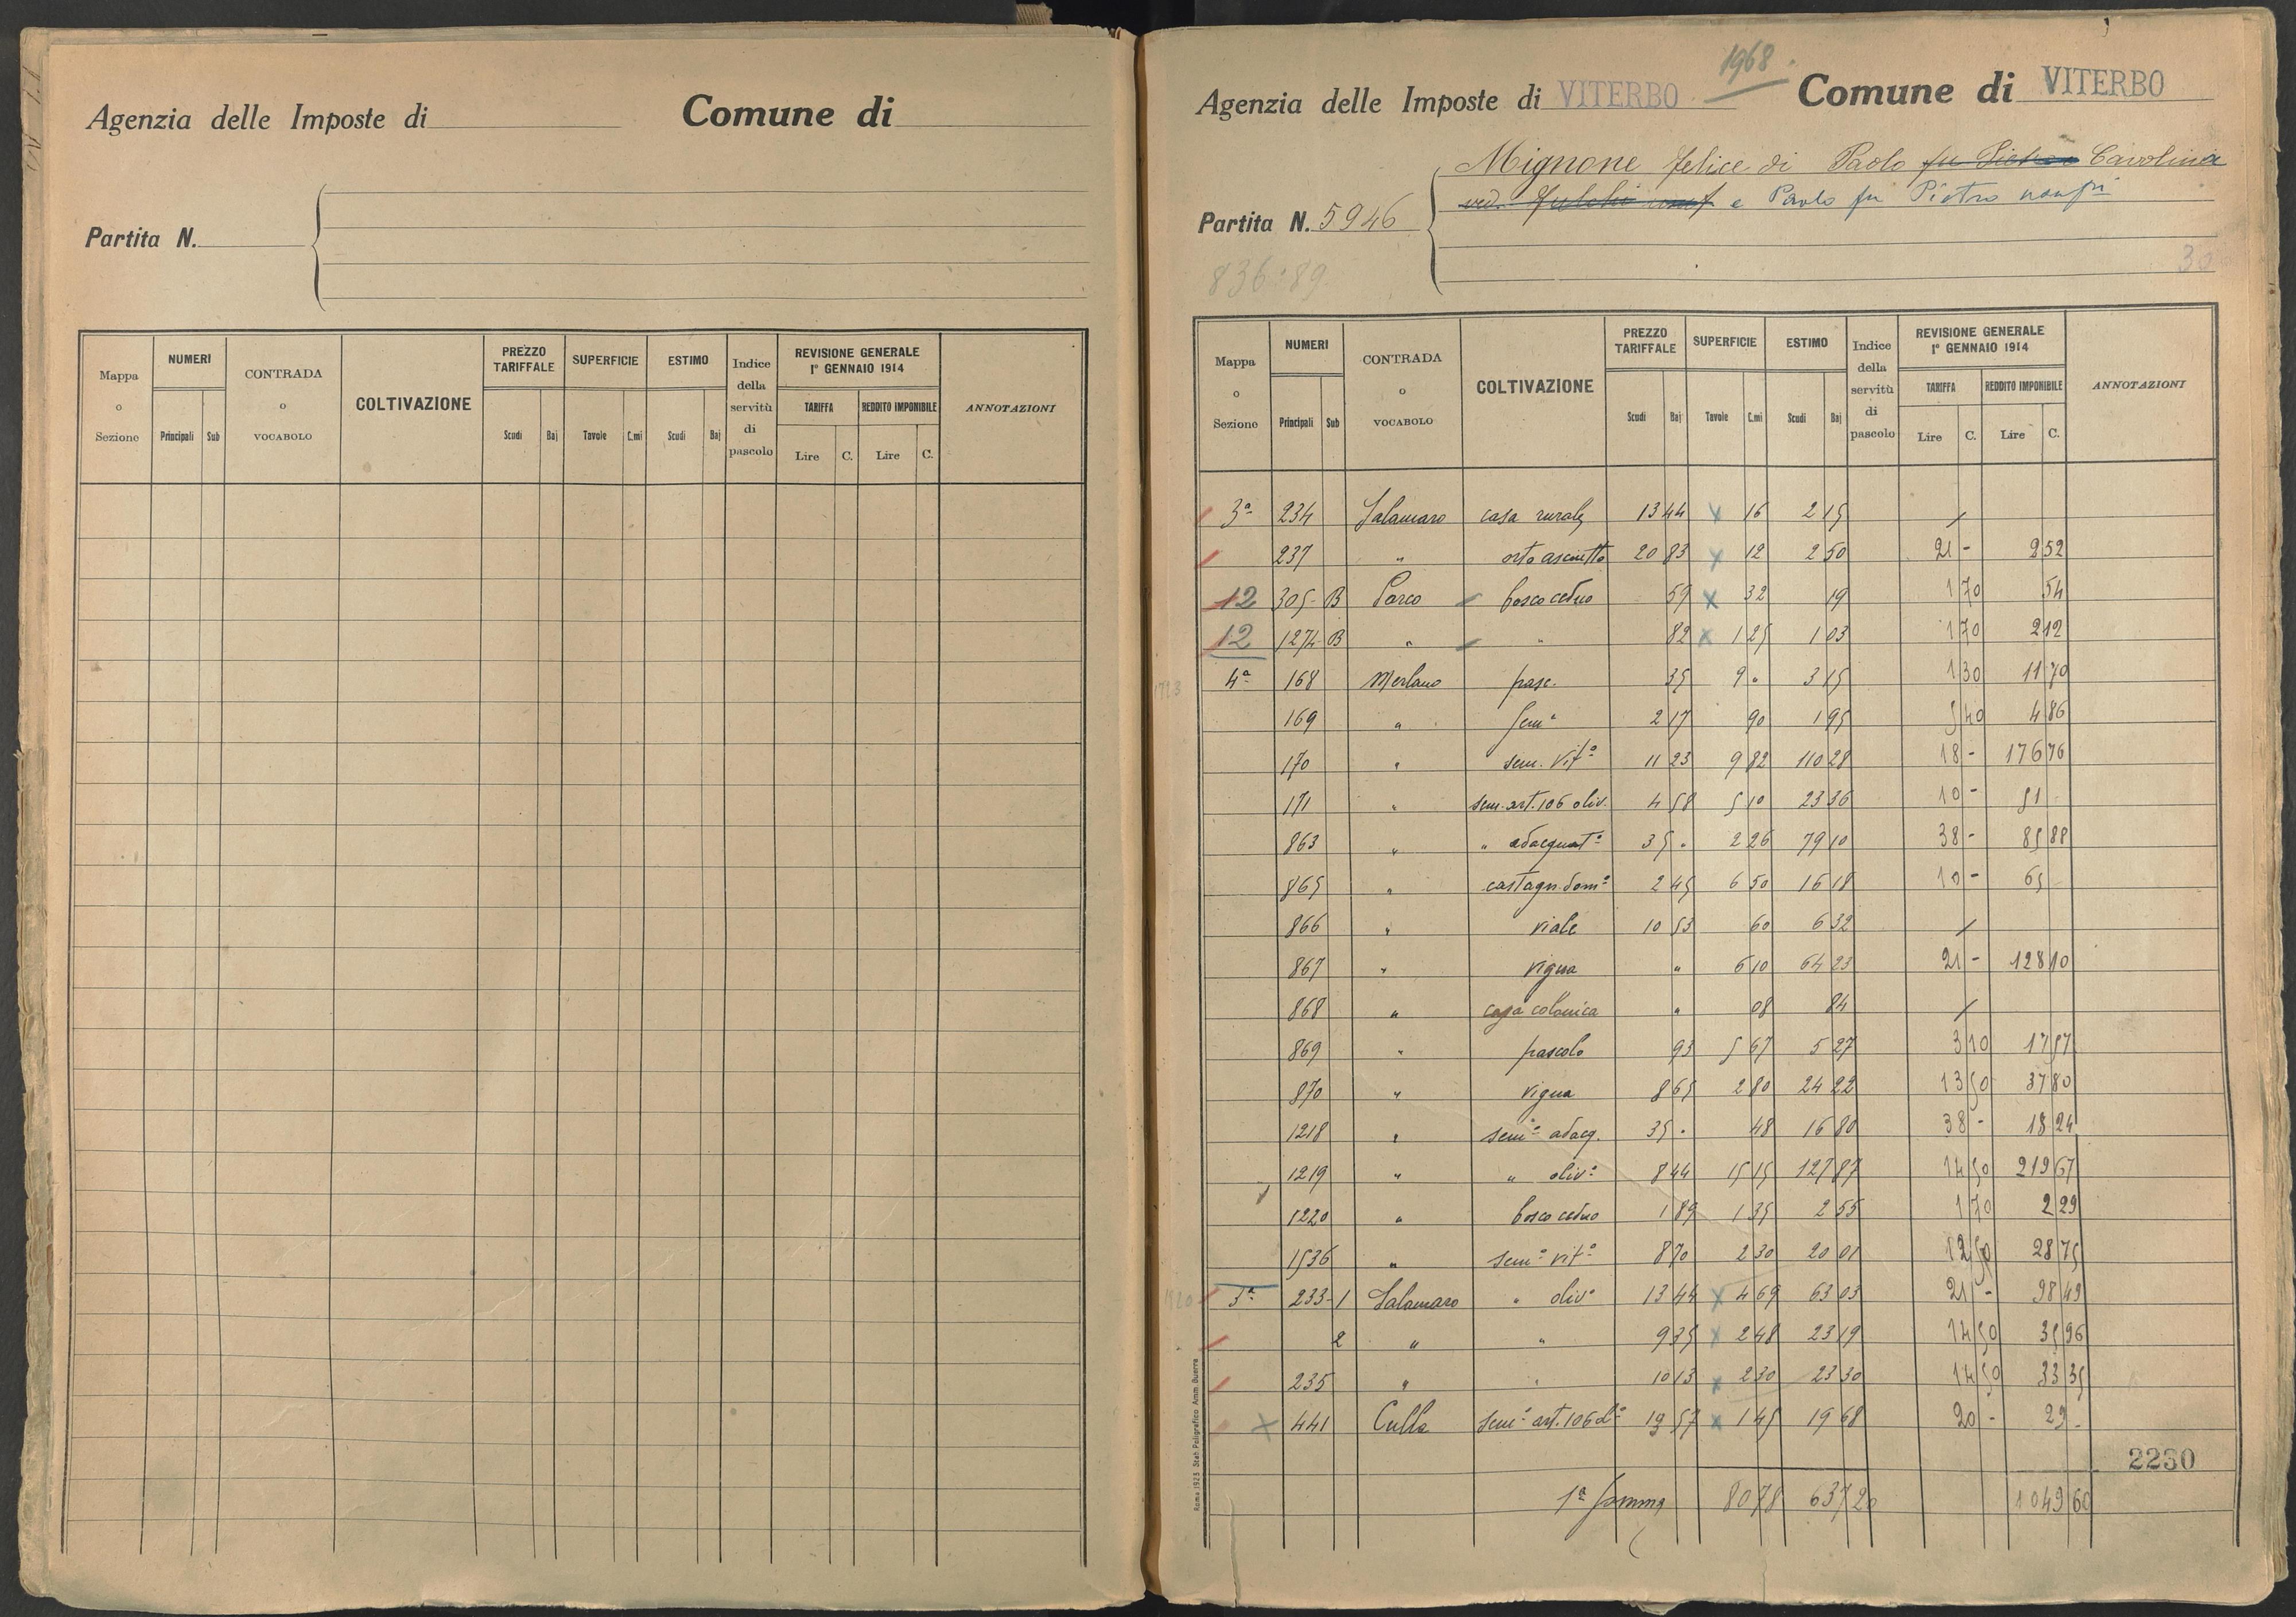 Agenzia delle Imposte di Comune di
Partita N.
Mappa o Sezione NUMERI Principali Sub CONTRADA o VOCABOLO COLTIVAZIONE PREZZO TARIFFALE Scudi Baj SUPERFICIE Tavole C.mi ESTIMO Scudi Baj Indice della servitù di pascolo REVISIONE GENERALE 1° GENNAIO 1914 TARIFFA Lire C. REDDITO IMPONIBILE Lire C. ANNOTAZIONI
1968
Agenzia delle Imposte di VITERBO Comune di VITERBO
Mignone felice di Paolo fu Carolina
ved. e Paolo fu Pietro
Partita N. 5946
836:89
30
Mappa o Sezione NUMERI Principali Sub CONTRADA o VOCABOLO COLTIVAZIONE PREZZO TARIFFALE Scudi Baj SUPERFICIE Tavole C.mi ESTIMO Scudi Baj Indice della servitù di pascolo REVISIONE GENERALE 1° GENNAIO 1914 TARIFFA Lire C. REDDITO IMPONIBILE Lire C. ANNOTAZIONI
3ª 234 Salamaro casa rurale 13 44 x 16 2 15 /
237 " orto asciutto 20 83 x 12 2 50 21 - 2 52
12 305 B Parco bosco ceduo 59 x 32 19 1 70 54
12 1274 B " " 82 x 1 25 1 03 1 70 2 12
4ª 168 Merlano pasc. 35 9 . 3 15 1 30 11 70
169 " Semº 2 17 90 1 95 5 40 4 86
170 " sem. vitº 11 23 9 82 110 28 18 - 176 76
171 " sem. art. 106 oliv. 4 58 5 10 23 36 10 - 51 -
863 " " adacquatº 35 . 2 26 79 10 38 - 85 88
865 " castagn. domº 2 45 6 50 16 18 10 - 65 -
866 " viale 10 53 60 6 32 /
867 " vigna " 6 10 64 23 21 - 128 10
868 " casa colonica " 08 84 /
869 " pascolo 93 5 67 5 27 3 10 17 57
870 " vigna 8 65 2 80 24 22 13 50 37 80
1218 " semº adacq. 35 . 48 16 80 38 - 18 24
1219 " " olivº 8 44 15 15 127 87 14 50 219 67
1220 " bosco ceduo 1 89 1 35 2 55 1 70 2 29
1536 " semº vitº 8 70 2 30 20 01 12 50 28 75
3ª 233 1 Salamaro " olivº 13 44 x 4 69 63 03 21 - 98 49
2 " " 9 35 x 2 48 23 19 14 50 35 96
235 " " 10 13 x 2 30 23 30 14 50 33 35
x 441 Culla semº art. 106 13 57 x 1 45 19 68 20 - 29 -
2230
1ª Somma 80 78 637 20 1049 60
Roma 1923 Stab. Poligrafico Amm. Guerra